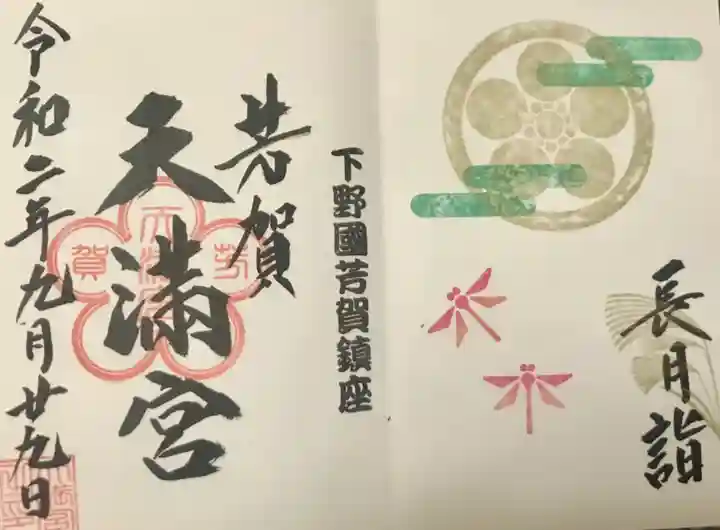 長月詣
下野國芳賀鎮座
芳賀
天満宮
令和二年九月廿九日
賀
芳
天満宮